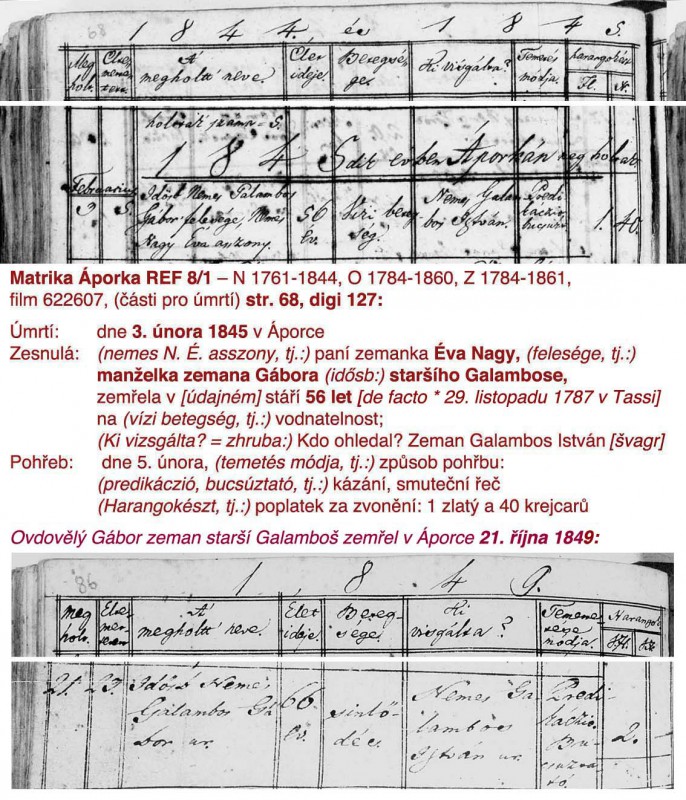 89
1 8 4 4. év 1 8 4 5.
Meg holt. A megholtt neve. Élet ideje. Betegsé- ge. Ki visgálta? Temetés módja. Harangokért
Ft. X.
1 8 4 5dik évben Áporkán meg holtak.
Februarius
3 5. Idősb Nemes Galambos Gábor felesége, Nemes Nagy Éva aszony. 56 év. Vízi beteg ség. Nemes Galam bos István. Predi káczio 1. 40.
Matrika Áporka REF 8/1 – N 1761-1844, O 1784-1860, Z 1784-1861,
film 622607, (části pro úmrtí) str. 68, digi 127:
Úmrtí: dne 3. února 1845 v Áporce
Zesnulá: (nemes N. É. asszony, tj.:) paní zemanka Éva Nagy, (felesége, tj.:)
manželka zemana Gábora (idősb:) staršího Galambose,
zemřela v [údajném] stáří 56 let [de facto * 29. listopadu 1787 v Tassi]
na (vízi betegség, tj.:) vodnatelnost;
(Ki vizsgálta? = zhruba:) Kdo ohledal? Zeman Galambos István [švagr]
Pohřeb: dne 5. února, (temetés módja, tj.:) způsob pohřbu:
(predikáczió, bucsúztató, tj.:) kázání, smuteční řeč
(Harangokészt, tj.:) poplatek za zvonění: 1 zlatý a 40 krejcarů
Ovdovělý Gábor zeman starší Galamboš zemřel v Áporce 21. října 1849:
1 8 4 9.
meg holt. A megholtt neve. Élet ideje. Beteg- sége. Ki visgálta? módja. Harango
21. 23. Idősb Nemes Galambos Gá bor ur. 66 év. sinlő- dés. Nemes Ga lambos István ur. Predi káczio 2. -